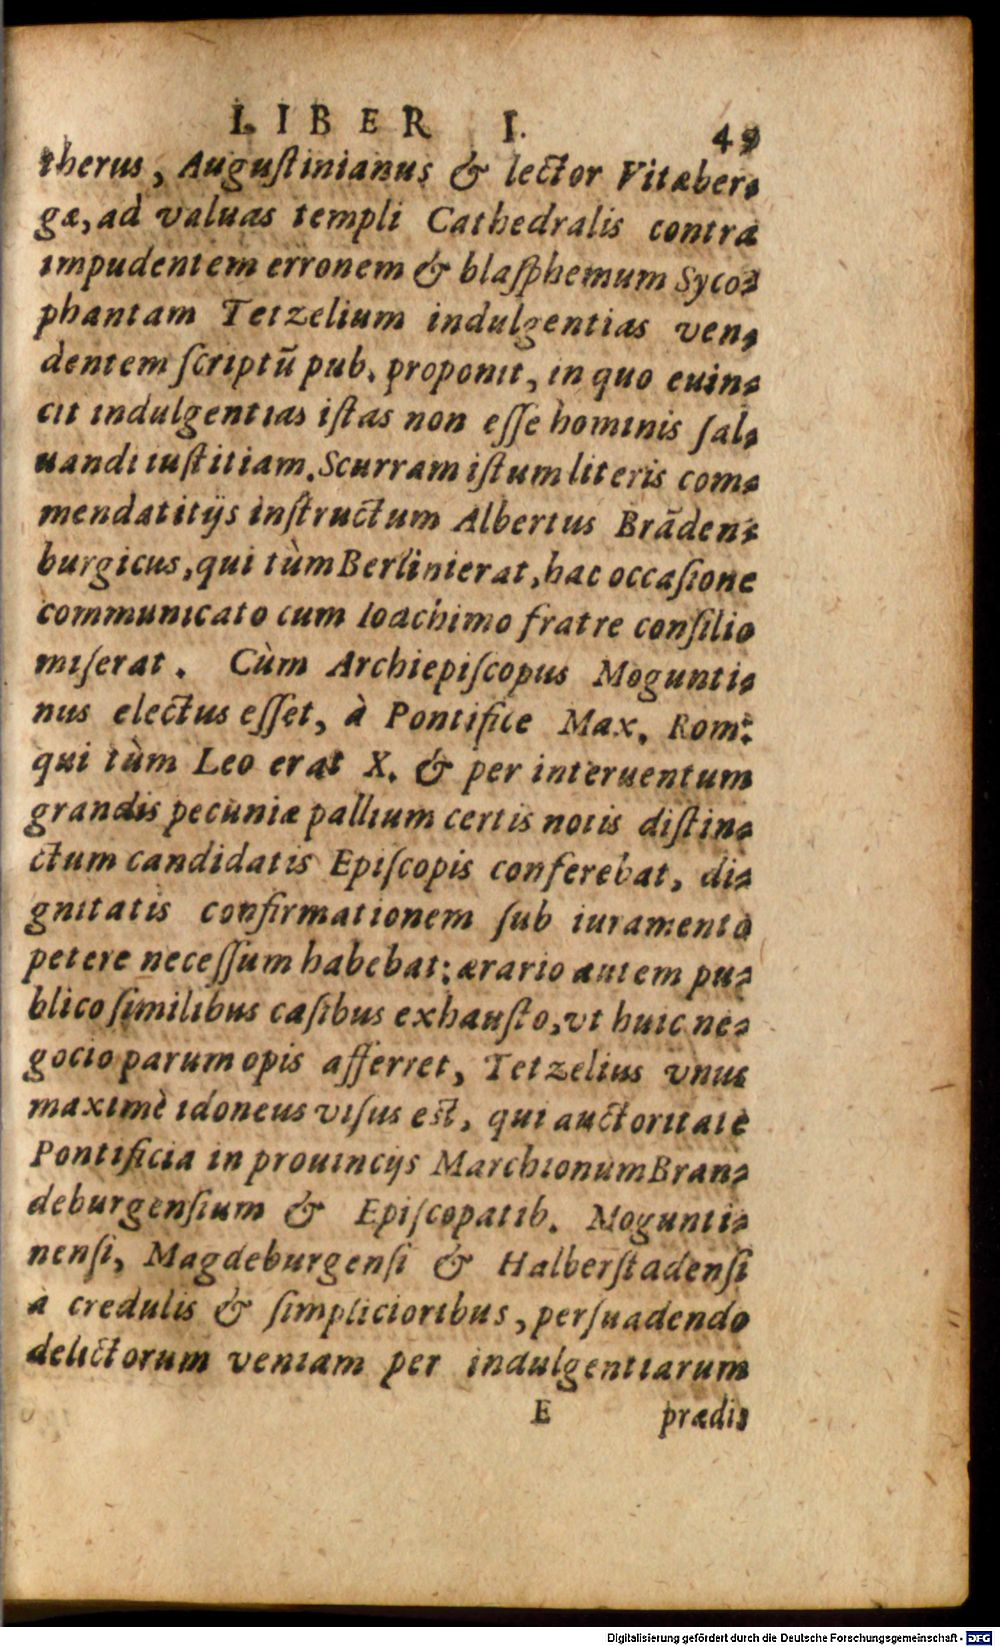 LIBER I. 49
therus, Augustinianus & lector Vitæber-
gæ, ad valuas templi Cathedralis contra
impudentem erronem & blasphemum Syco-
phantam Tetzelium indulgentias ven-
dentem scriptū pub. proponit, in quo euin-
cit indulgentias istas non esse hominis sal-
uandi iustitiam. Scurram istum literis com-
mendatitijs instructum Albertus Brāden-
burgicus, qui tùm Berlini erat, hac occasione
communicato cum Ioachimo fratre consilio
miserat. Cùm Archiepiscopus Mogunti-
nus electus esset, à Pontifice Max. Rom:
qui tùm Leo erat X. & per interuentum
grandis pecuniæ pallium certis notis distin-
ctum candidatis Episcopis conferebat, di-
gnitatis confirmationem sub iuramento
petere necessum habebat: ærario autem pu-
blico similibus casibus exhausto, vt huic ne-
gocio parum opis afferret, Tetzelius vnus
maximè idoneus visus est, qui auctoritate
Pontificia in prouincijs Marchionum Bran-
deburgensium & Episcopatib. Mogunti-
nensi, Magdeburgensi & Halberstadensi
à credulis & simplicioribus, persuadendo
delictorum veniam per indulgentiarum
E prædi-
Digitalisierung gefördert durch die Deutsche Forschungsgemeinschaft - DFG